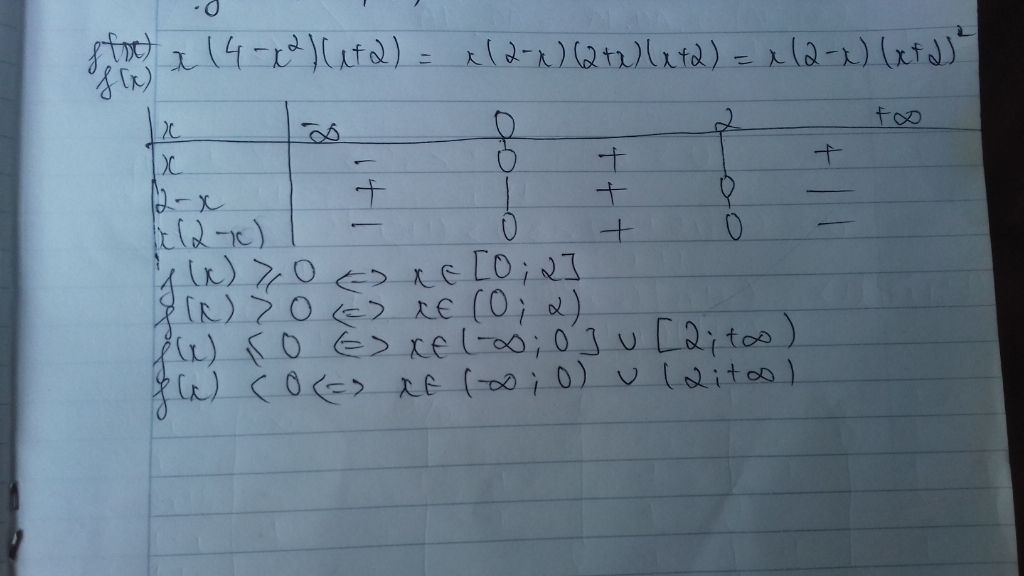 f(x) x(4-x²)(x+2) = x(2-x)(2+x)(x+2) = x(2-x)(x+2)²
f(x)
x -∞ 0 2 +∞
x - 0 + | +
2-x + | + 0 -
x(2-x) - 0 + 0 -
f(x) ⩾ 0 <=> x∈[0;2]
f(x) > 0 <=> x∈(0;2)
f(x) ⩽ 0 <=> x∈(-∞;0] ∪ [2;+∞)
f(x) < 0 <=> x∈(-∞;0) ∪ (2;+∞)